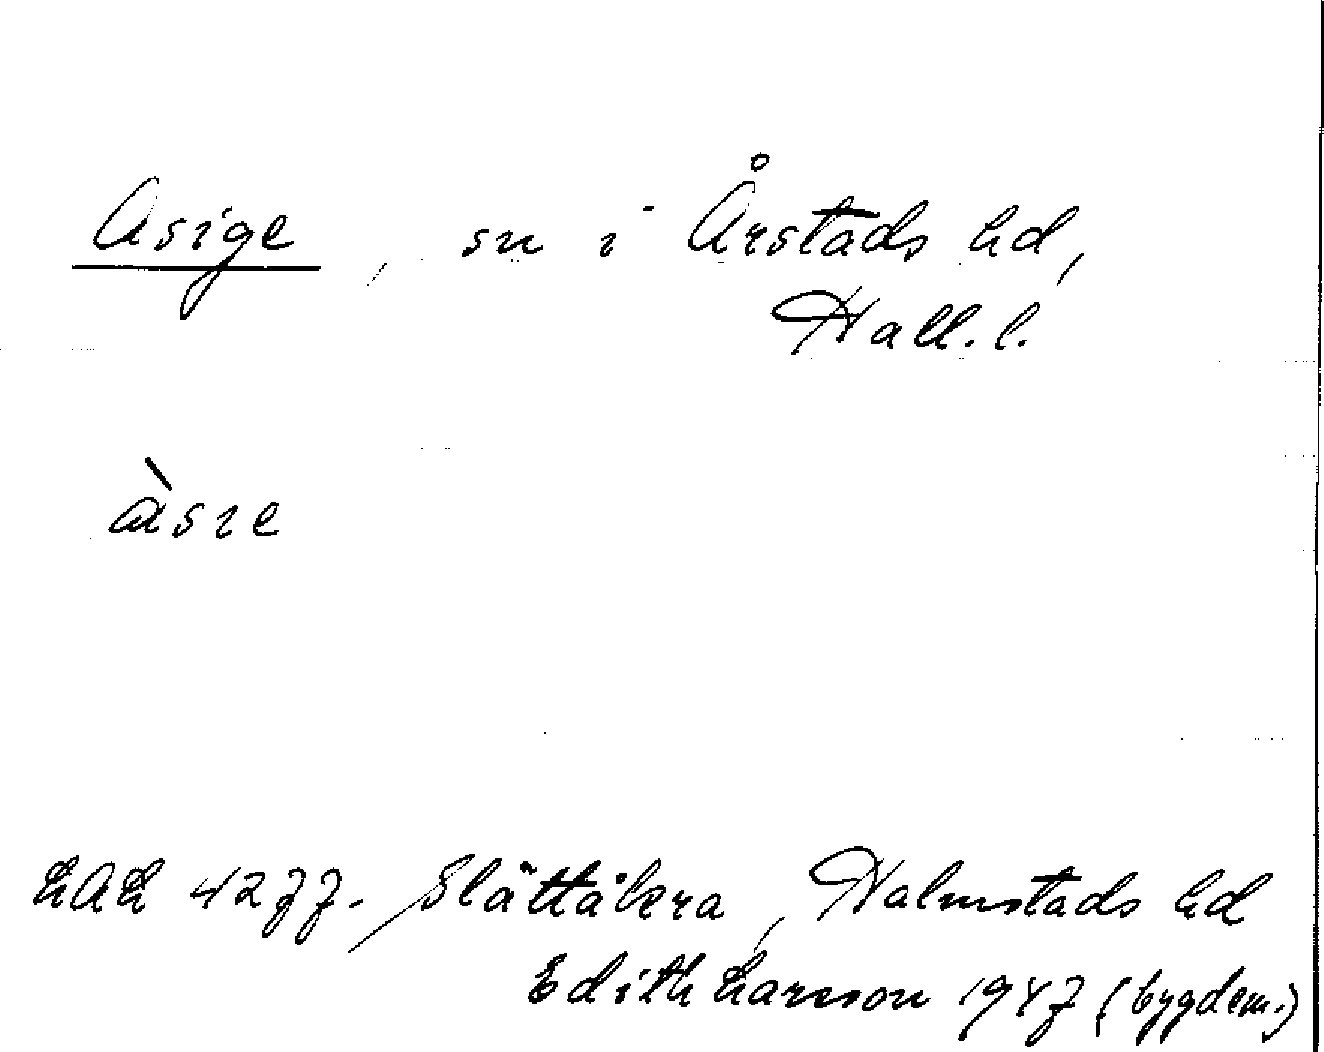 Asige, sn i Årstads hd,
Hall. l.
àsıe
LAL 4277. Slättåkra, Halmstads hd
Edith Larsson 1947 (bygdem.)